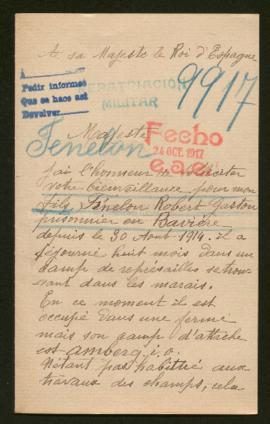 A sa Majesté le Roi d'Espagne
A
Pedir informes
Que se hace así
Devolver
REPATRIACIÓN
MILITAR
9917
Majesté
Fenelon
Fecho
24 OCT. 1917
j'ai l'honneur de solliciter
votre bienveillance pour mon
fils, Fénelon Robert Gaston
prisonnier en Bavière
depuis le 30 Aout 1914. il a
séjourné huit mois dans un
camp de represailles se trou
vant dans les marais.
En ce moment il est
occupé dans une ferme
mais son camp d'attache
est Amberg
N'étant pas habitué aux
travaux des champs, cela